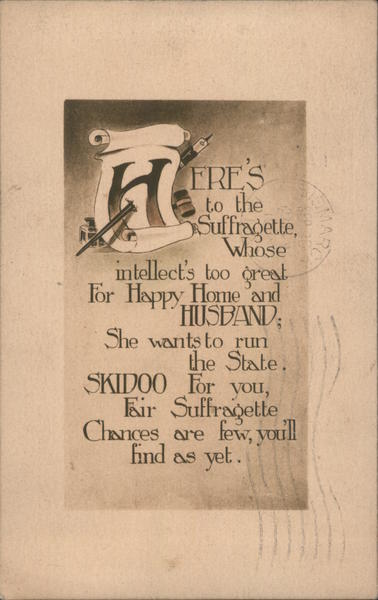 HERE'S
to the
Suffragette,
Whose
intellect's too great
For Happy Home and
HUSBAND;
She wants to run
the State.
SKIDOO For you,
Fair Suffragette
Chances are few, you'll
find as yet.